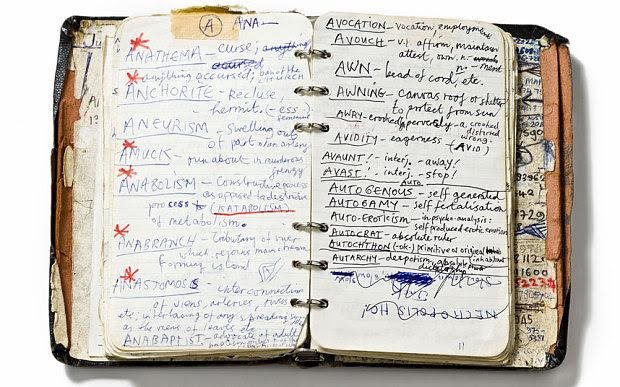 A ANA—
ANATHEMA – curse; anything
accursed
anything accursed; ban of the CHURCH
ANCHORITE – Recluse,
hermit. (-ess-) feminine
ANEURISM – Swelling out
of part of an artery
AMUCK – run about in murderous
frenzy
ANABOLISM – Constructive process
as opposed to destructive
process (KATABOLISM)
of metabolism.
ANABRANCH – tributary of river
which rejoins main stream
forming island
ANASTOMOSIS – interconnection
of veins, arteries, rivers
etc; interlacing of any spreading system
as the veins of leaves etc
ANABAPTIST – advocate of adult
AVOCATION – vocation, employment
AVOUCH – v.t affirm, maintain
attest, own. n. -ment
AWN – n. beard of corn, etc.
AWNING – canvas roof or shelter
to protect from sun
AWRY – crookedly, perversely – a. crooked
distorted
wrong.
AVIDITY – eagerness (AVID)
AVAUNT! – interj. – away!
AVAST! – interj. – stop!
AUTOGENOUS – self generated
AUTOGAMY – self fertilisation
AUTO-EROTICISM – in psycho-analysis:
self produced erotic emotion
AUTOCRAT – absolute ruler
AUTOCHTHON (-ok-) primitive or original inhabitant
AUTARCHY – despotism, absolute
dictatorship
NECROPOLIS
11